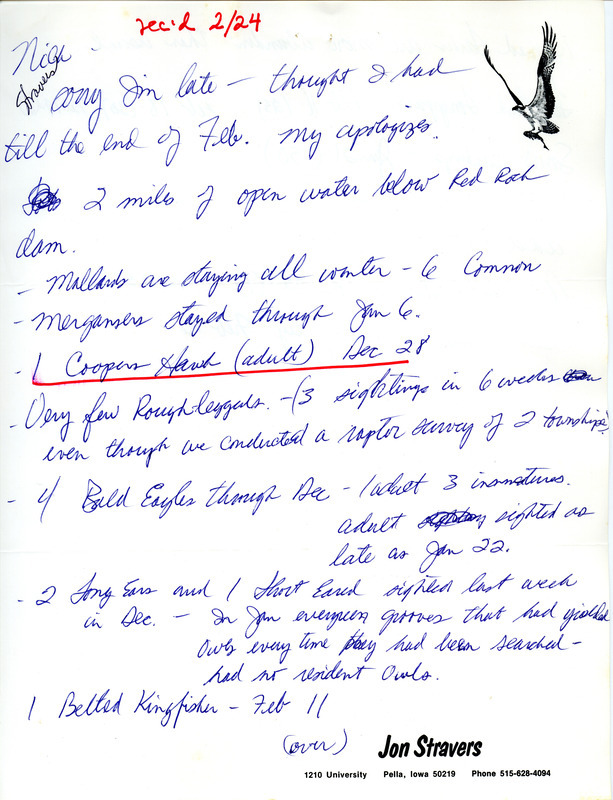 rec'd 2/24
Nick -
Stravers
Sorry I'm late - thought I had
till the end of Feb. my apologizes.
2 miles of open water below Red Rock
dam.
- Mallards are staying all winter - 6 Common
- Mergansers stayed through Jan 6.
- 1 Coopers Hawk (adult) Dec 28
- Very few Rough-leggeds. - (3 sightings in 6 weeks
even though we conducted a raptor survey of 2 townships)
- 4 Bald Eagles through Dec - 1 adult 3 immatures.
adult sighted as
late as Jan 22.
- 2 Long Ears and 1 Short Eared sighted last week
in Dec. - In Jan evergreen grooves that had yielded
Owls every time they had been searched -
had no resident Owls.
1 Belted Kingfisher - Feb 11
(over)
Jon Stravers
1210 University Pella, Iowa 50219 Phone 515-628-4094